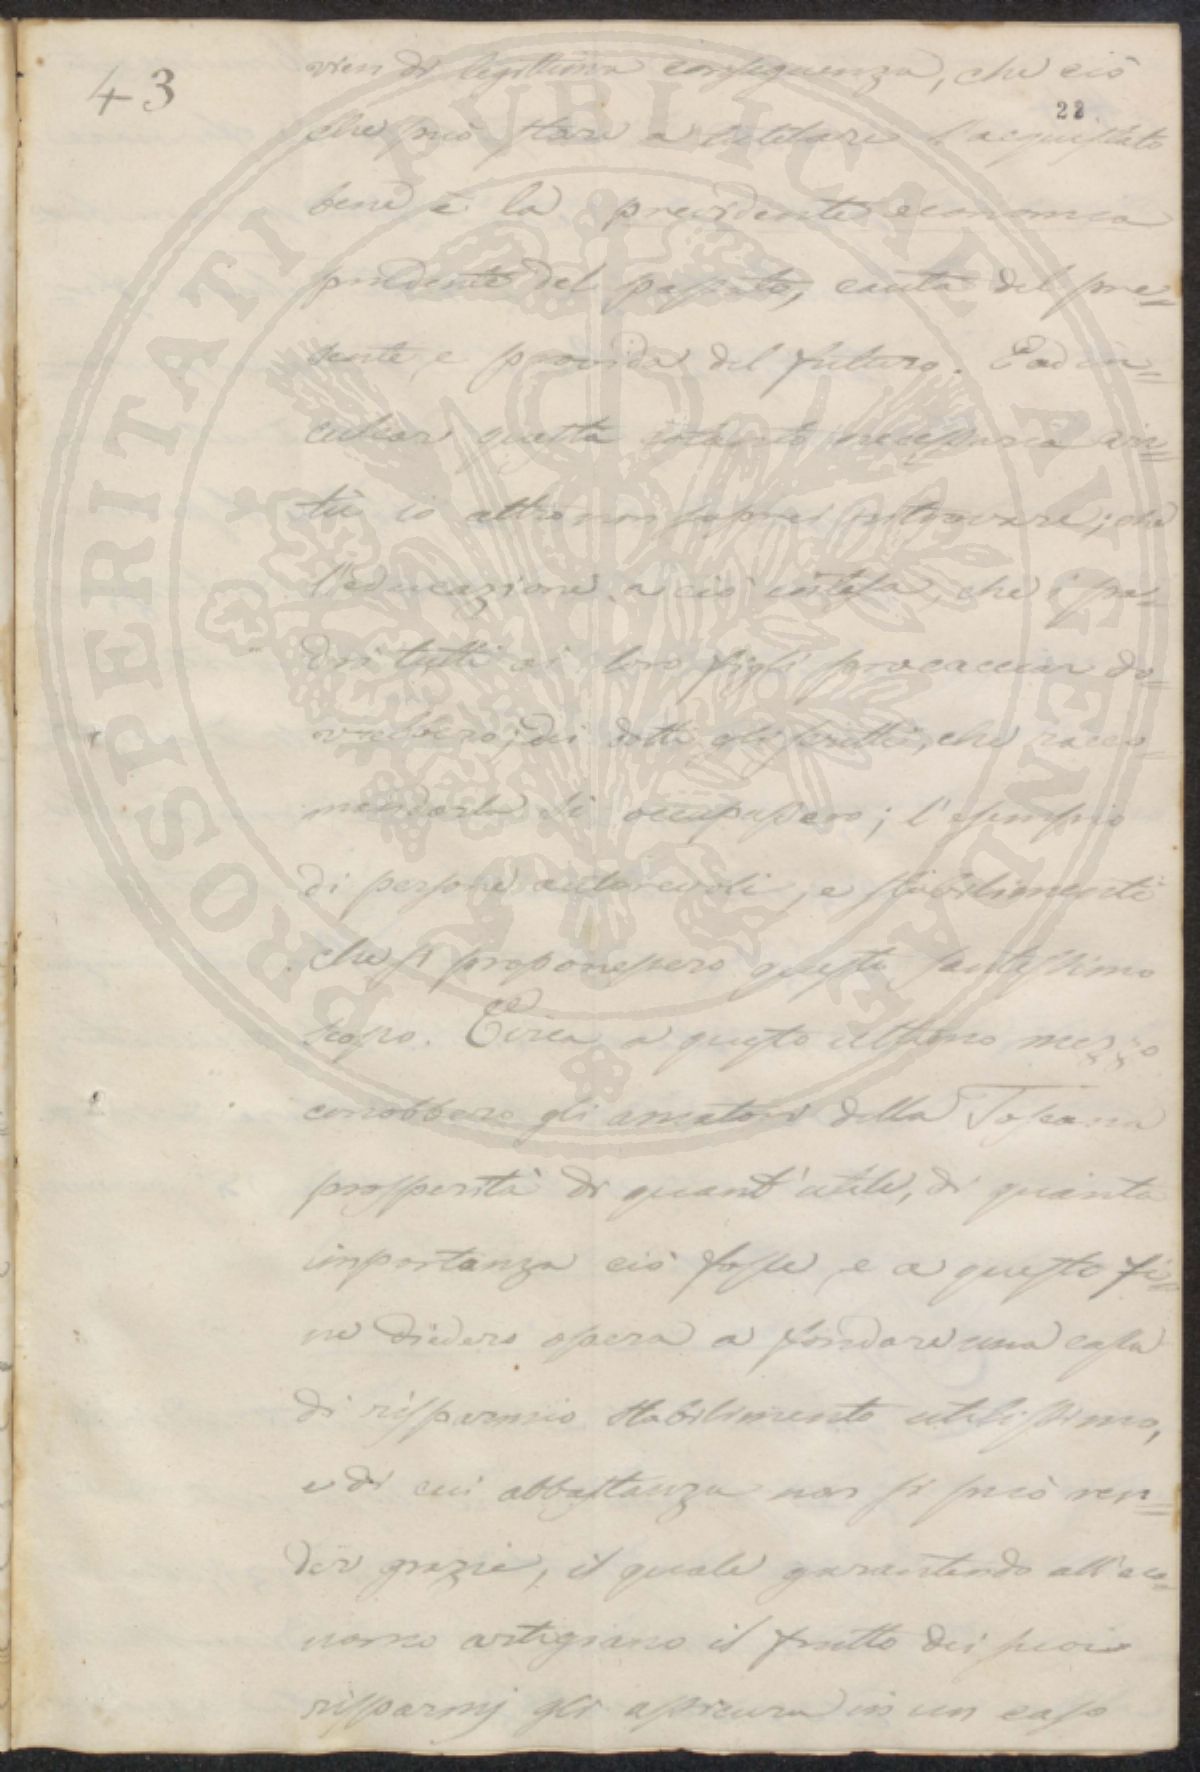 43
22
vien di legittima conseguenza, che ciò
che può stare a tutelare l'acquistato
bene è la previdente economia
prudente del passato, cauta del pre=
sente, e provida del futuro. Ead in=
culcar questa cotanto necessaria vir=
tù io altro non saprei ritrovare; che
l'educazione a ciò intesa, che i pa=
dri tutti ai loro figli procacciar do=
vrebbero; dei dotti gli scritti, che racco=
mandarla si occupassero; l'esempio
di persone autorevoli, e stabilimenti
che si proponessero questo santissimo
scopo. Circa a questo ultimo mezzo
conobbero gli amatori della Toscana
prosperità di quant'utile, di quanta
importanza ciò fosse, e a questo fi=
ne diedero opera a fondare una cassa
di risparmio stabilimento utilissimo,
e di cui abbastanza non si può ren=
der grazie, il quale garantendo all'eco=
nomo artigiano il frutto dei suoi
risparmj gli assicura in un caso
PROSPERITATI PVBLICAE AVGENDAE